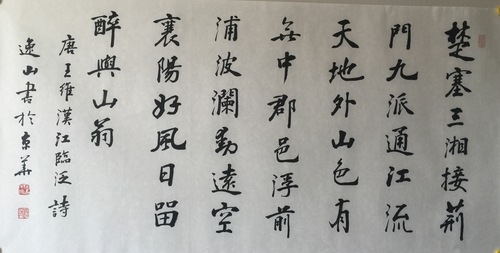 楚塞三湘接荊
門九派通江流
天地外山色有
無中郡邑浮前
浦波瀾動遠空
襄陽好風日留
醉與山翁
唐王維漢江臨泛詩
逸山書於京華